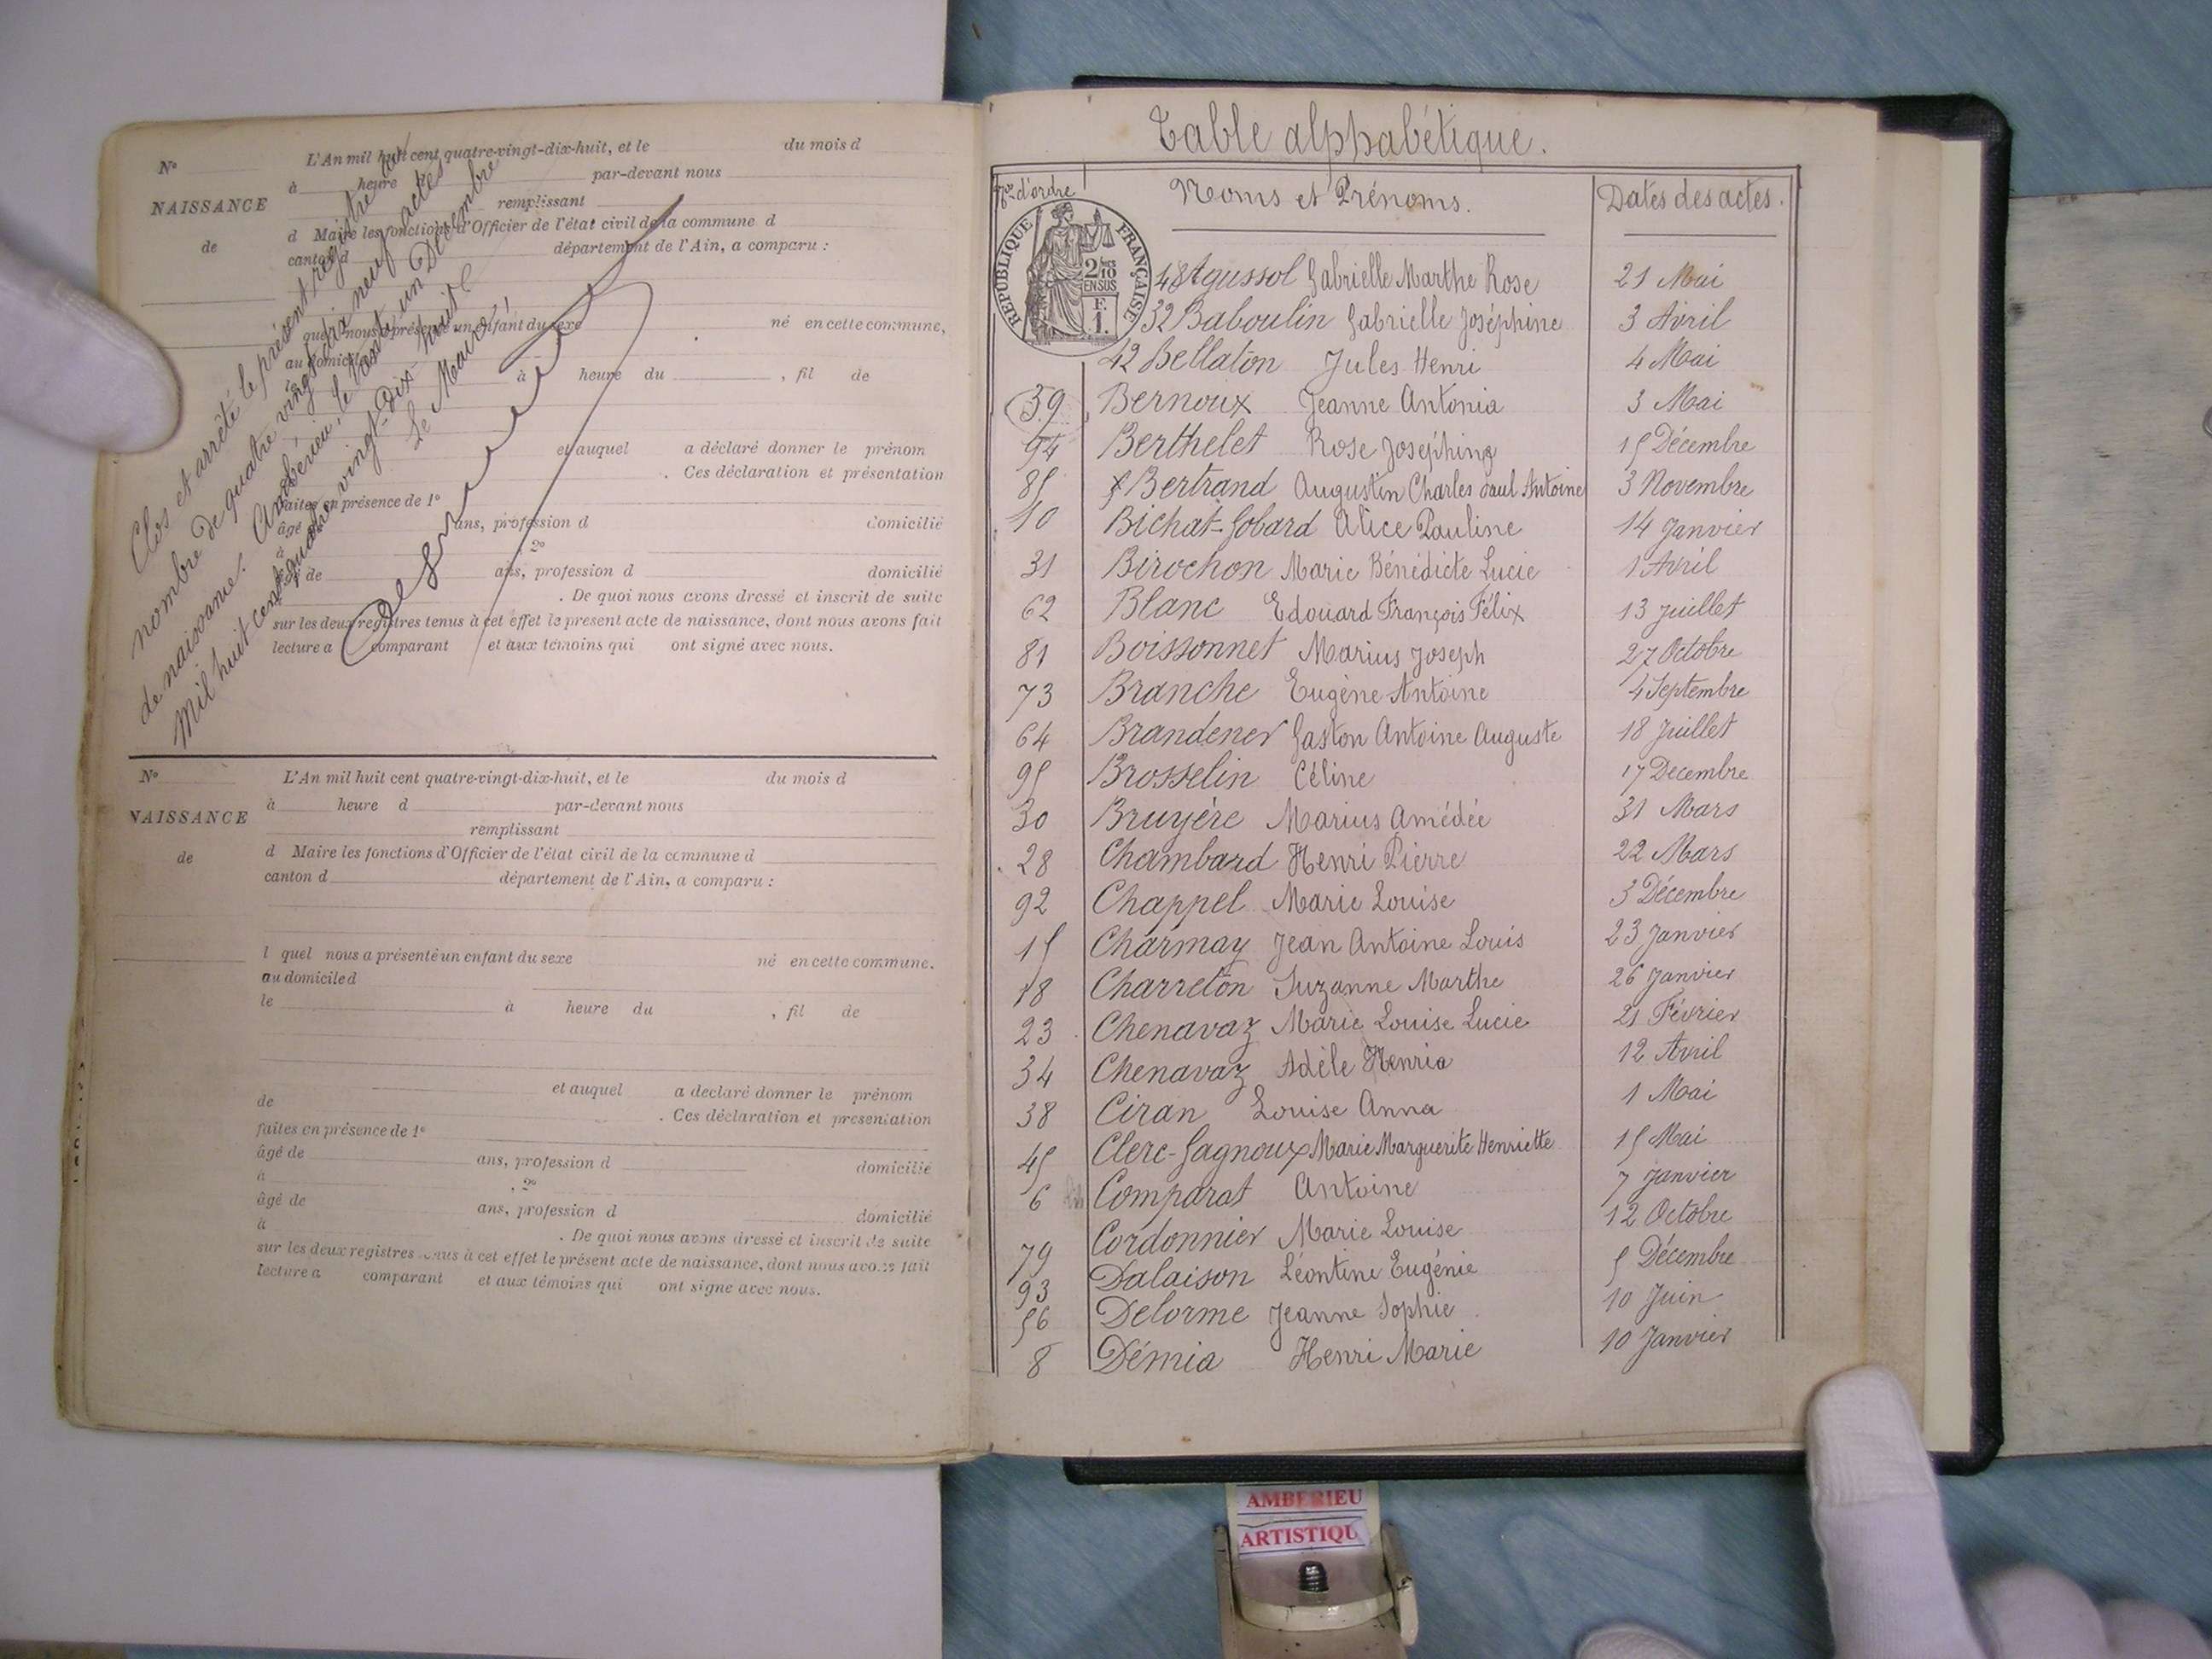 N°
L'An mil huit cent quatre-vingt-dix-huit, et le du mois d
à heure d par-devant nous
NAISSANCE
remplissant
de
d Maire les fonctions d'Officier de l'état civil de la commune d
canton d département de l'Ain, a comparu :
quel nous a présenté un enfant du sexe né en cette commune,
au domicile
le à heure du , fil de
et auquel a déclaré donner le prénom
. Ces déclaration et présentation
faites en présence de 1°
âgé ans, profession d domicilié
à , 2°
âgé de ans, profession d domicilié
. De quoi nous avons dressé et inscrit de suite
sur les deux registres tenus à cet effet le présent acte de naissance, dont nous avons fait
lecture a comparant et aux témoins qui ont signé avec nous.
Clos et arrêté le présent registre au
nombre de quatre vingt dix neuf actes
de naissance. Ambérieu, le trente un Décembre
Mil huit cent quatre vingt-dix-huit
Le Maire,
N°
L'An mil huit cent quatre-vingt-dix-huit, et le du mois d
à heure d par-devant nous
NAISSANCE
remplissant
de
d Maire les fonctions d'Officier de l'état civil de la commune d
canton d département de l'Ain, a comparu :
l quel nous a présenté un enfant du sexe né en cette commune.
au domicile d
le à heure du , fil de
et auquel a déclaré donner le prénom
de . Ces déclaration et présentation
faites en présence de 1°
âgé de ans, profession d domicilié
à , 2°
âgé de ans, profession d domicilié
à . De quoi nous avons dressé et inscrit de suite
sur les deux registres tenus à cet effet le présent acte de naissance, dont nous avons fait
lecture a comparant et aux témoins qui ont signé avec nous.
Table alphabétique.
Nos d'ordre Noms et Prénoms. Dates des actes.
RÉPUBLIQUE FRANÇAISE
2/10
EN SUS
F.
1.
48 Agussol Gabrielle Marthe Rose 21 Mai
32 Baboulin Gabrielle Joséphine 3 Avril
42 Bellaton Jules Henri 4 Mai
39 Bernoux Jeanne Antonia 3 Mai
94 Berthelet Rose Joséphine 15 Décembre
85 Bertrand Augustin Charles Paul Antoine 3 Novembre
10 Bichat-Gobard Alice Pauline 14 Janvier
31 Birochon Marie Bénédicte Lucie 1 Avril
62 Blanc Edouard François Félix 13 Juillet
81 Boissonnet Marius Joseph 27 Octobre
73 Branche Eugène Antoine 4 Septembre
64 Brandener Gaston Antoine Auguste 18 Juillet
95 Brosselin Céline 17 Décembre
30 Bruyère Marius Amédée 31 Mars
28 Chambard Henri Pierre 22 Mars
92 Chappel Marie Louise 3 Décembre
15 Charmay Jean Antoine Louis 23 Janvier
18 Charreton Suzanne Marthe 26 Janvier
23 Chenavaz Marie Louise Lucie 21 Février
34 Chenavaz Adèle Henria 12 Avril
38 Ciran Louise Anna 1 Mai
45 Clerc-Gagnoux Marie Marguerite Henriette 15 Mai
6 Comparat Antoine 7 Janvier
79 Cordonnier Marie Louise 12 Octobre
93 Dalaison Léontine Eugénie 5 Décembre
56 Delorme Jeanne Sophie 10 Juin
8 Démia Henri Marie 10 Janvier
AMBERIEU
ARTISTIQU